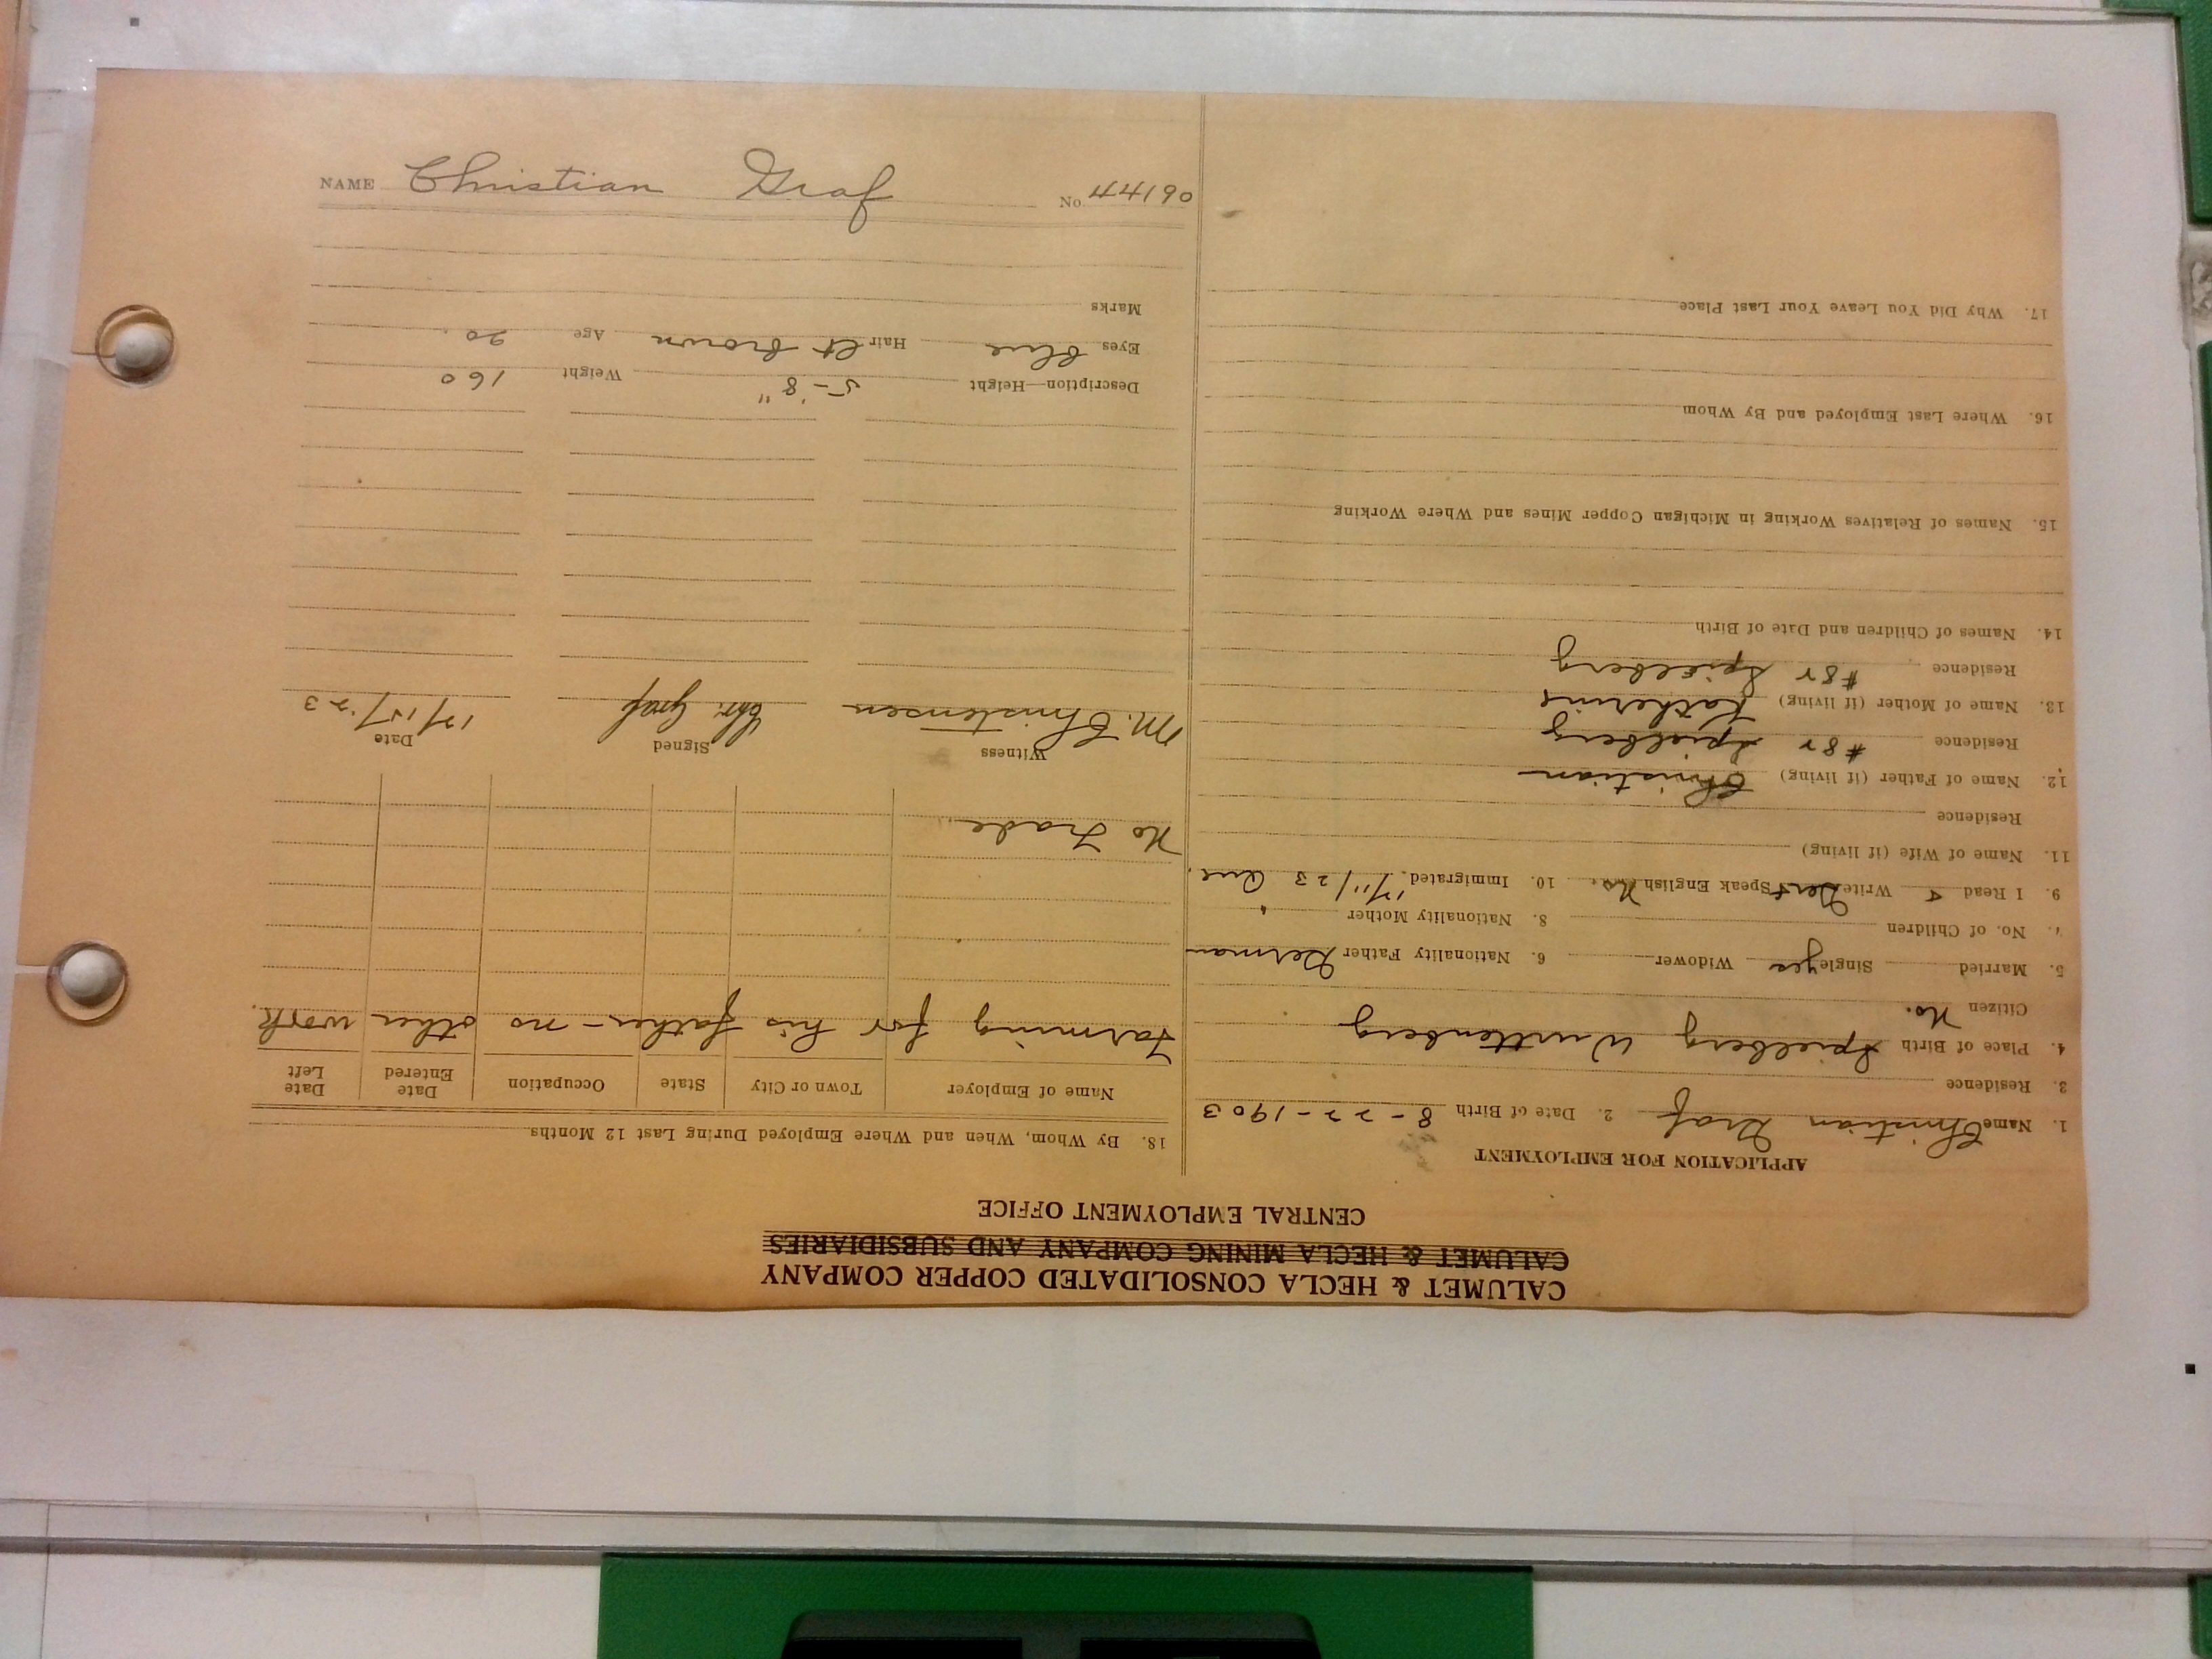 NAME Christian Graf No. 44190
CALUMET & HECLA CONSOLIDATED COPPER COMPANY
CALUMET & HECLA MINING COMPANY AND SUBSIDIARIES
CENTRAL EMPLOYMENT OFFICE
APPLICATION FOR EMPLOYMENT
1. Name Christian Graf 2. Date of Birth 8-22-1903
3. Residence
4. Place of Birth Spielberg Wurttenberg
Citizen No.
5. Married Single yes Widower 6. Nationality Father German
7. No. of Children 8. Nationality Mother "
9. I Read & Write Ger Speak English No. 10. Immigrated 12/11/23
11. Name of Wife (if living)
Residence
12. Name of Father (if living) Christian
Residence #82 Spielberg
13. Name of Mother (if living) Katherine
Residence #82 Spielberg
14. Names of Children and Date of Birth
15. Names of Relatives Working in Michigan Copper Mines and Where Working
16. Where Last Employed and By Whom
17. Why Did You Leave Your Last Place
18. By Whom, When and Where Employed During Last 12 Months
Name of Employer Town or City State Occupation Date Entered Date Left
Farming for his father - no other work.
No Trade.
Witness Signed Date
M. Christensen Chr. Graf 12/15/23
Description—Height 5-8" Weight 160
Eyes blue Hair lt brown Age 20.
Marks